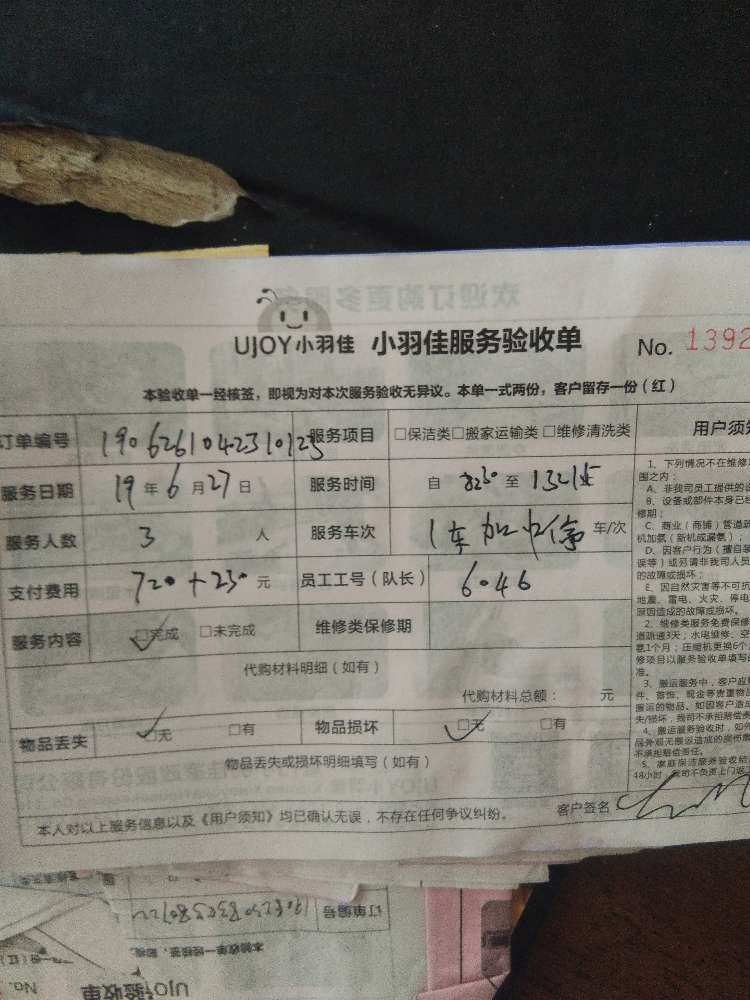 UJOY小羽佳 小羽佳服务验收单 No. 1392
本验收单一经核签，即视为对本次服务验收无异议。本单一式两份，客户留存一份（红）
订单编号 1906261042310123 服务项目 □保洁类□搬家运输类□维修清洗类 用户须知
服务日期 19年6月27日 服务时间 自 8230 至
服务人数 3 人 服务车次 1车 车/次
支付费用 720+230元 员工工号（队长） 6046
服务内容 □完成 □未完成 维修类保修期
代购材料明细（如有）
代购材料总额： 元
物品丢失 □无 □有 物品损坏 □无 □有
物品丢失或损坏明细填写（如有）
客户签名
本人对以上服务信息以及《用户须知》均已确认无误，不存在任何争议纠纷。
1、下列情况不在维修
围之内：
A、非我司员工提供的
B、设备或部件本身已
修期；
C、商业（商铺）管道疏
机加氨（新机或漏氨）；
D、因客户行为（擅自装
误等）或另请非我司人员
的故障或损坏；
E、因自然灾害等不可抗
地震、雷电、火灾、停电
原因造成的故障或损坏。
2、维修类服务免费保修
道疏通3天；水电维修、空
氨1个月；压缩机更换6个
修项目以服务验收单填写
准。
3、搬运服务中，客户应
件、首饰、现金等贵重物品
搬运的物品。如因客户造成
失/损坏，我司不承担赔偿责
4、搬运服务验收时，如外
品外观无搬运造成的损伤
不承担赔偿责任。
5、家庭保洁服务验收结
48小时，我司不负责上门返
订单编号
本验收单一经核签，即视
UJOY 验收单 No.